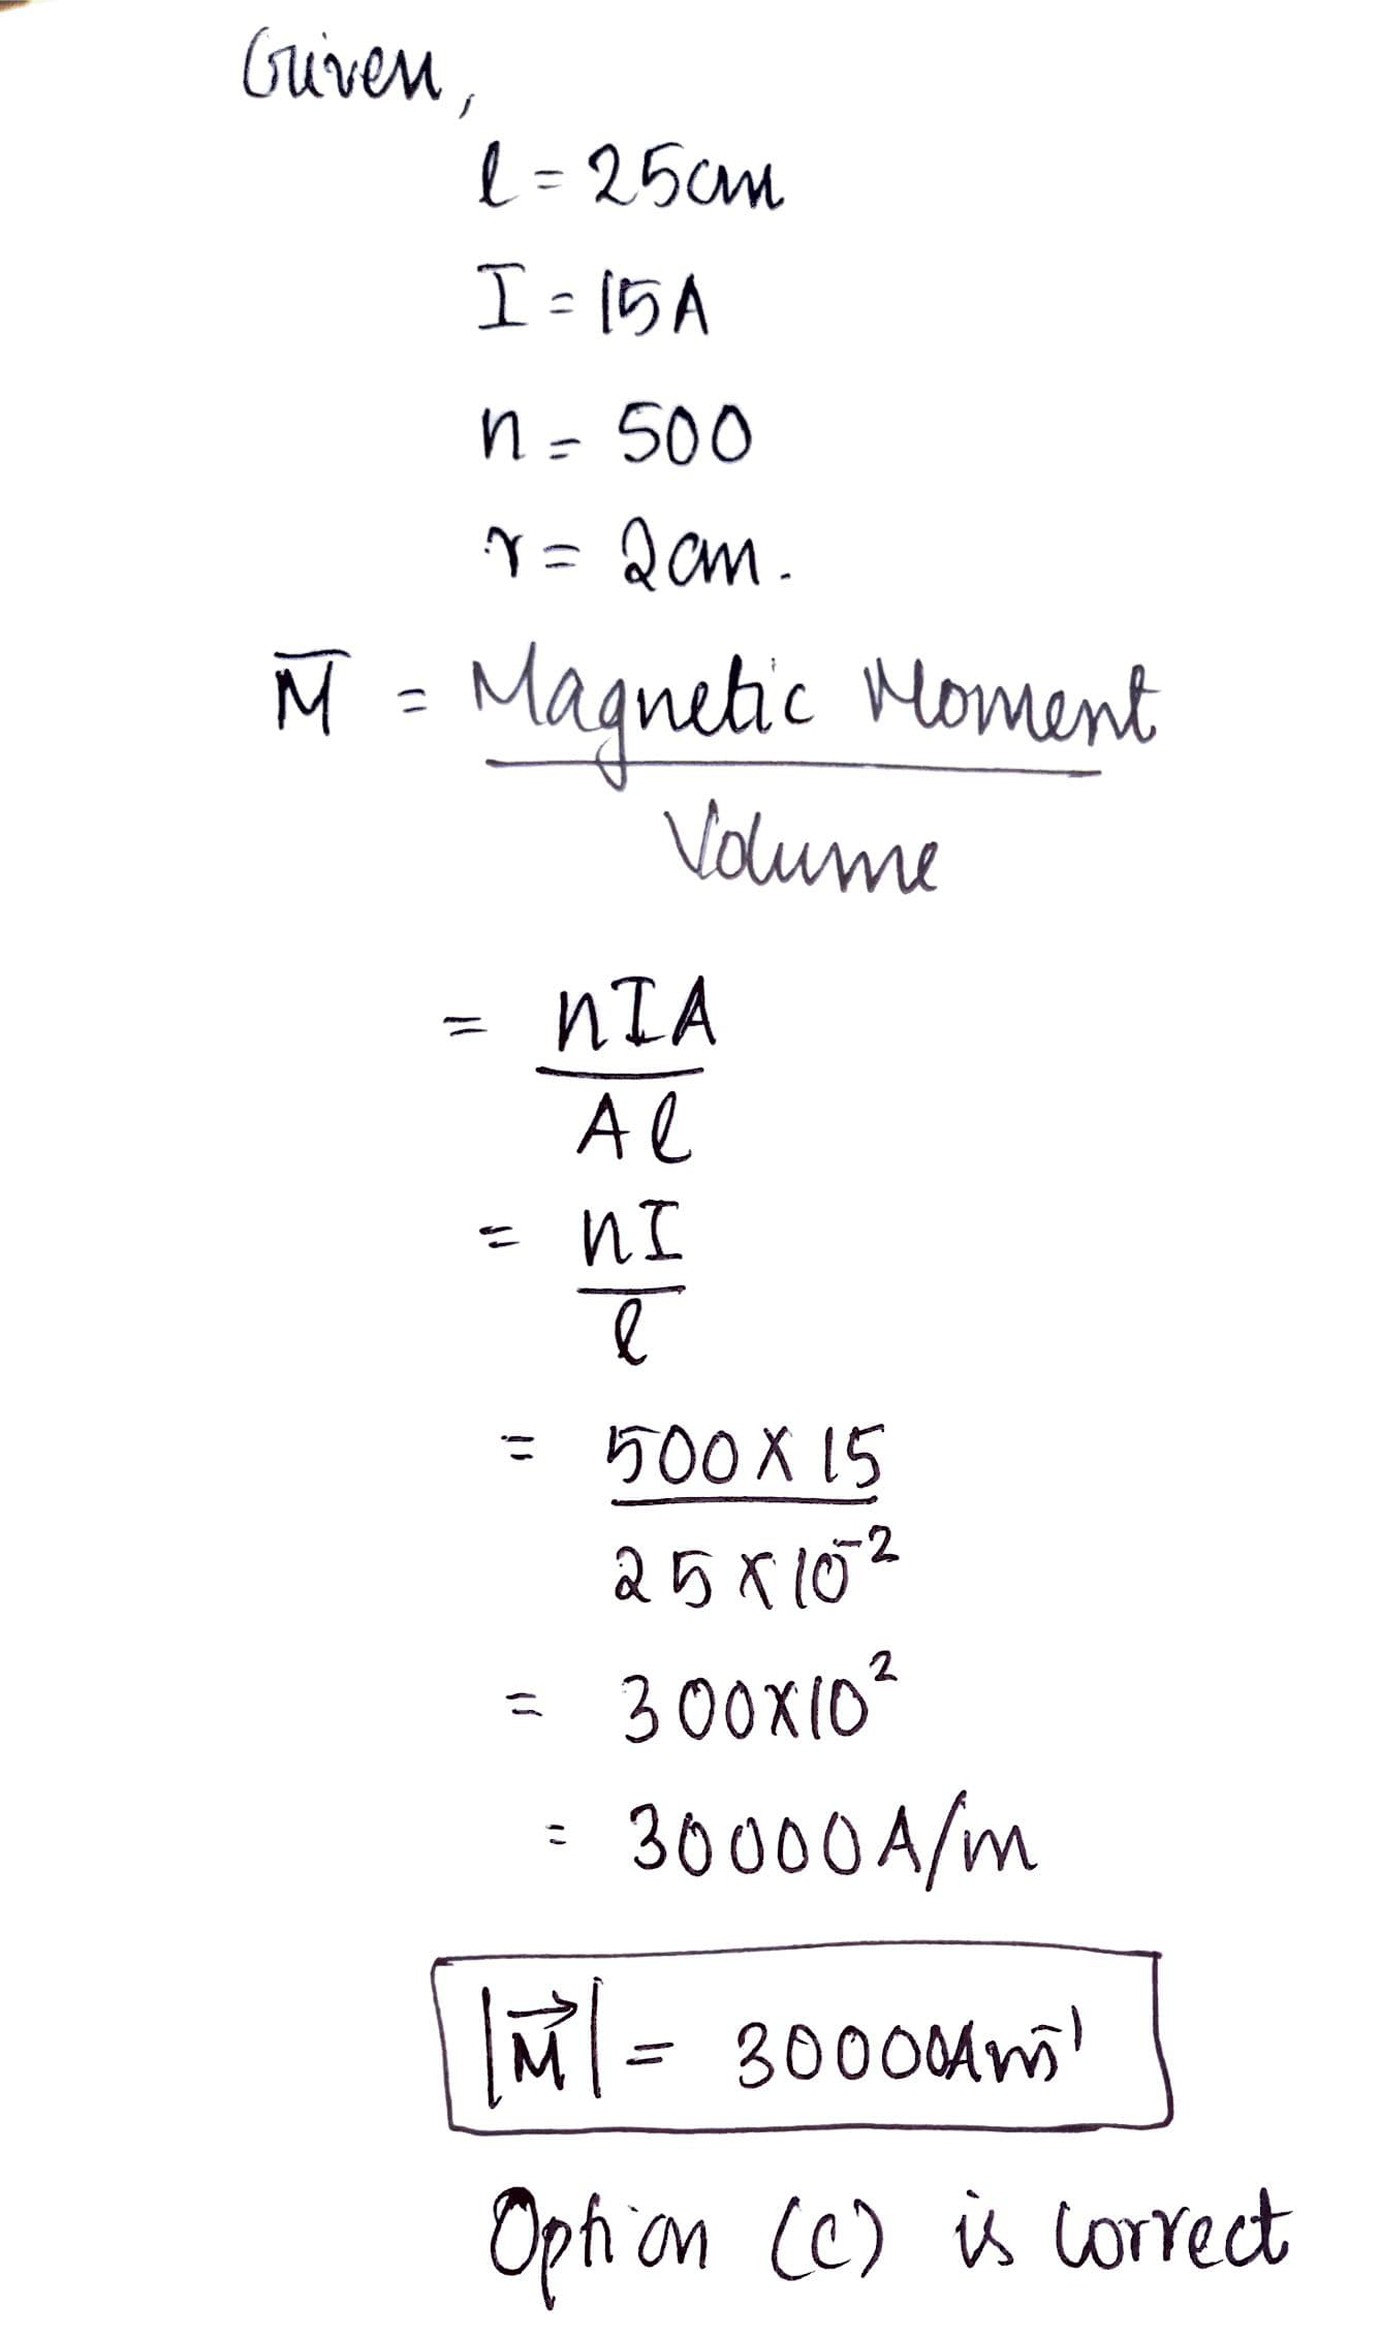 Given,
l = 25cm
I = 15A
n = 500
r = 2cm.
M̅ = Magnetic Moment
Volume
= nIA
Al
= nI
l
= 500 X 15
25 x 10⁻²
= 300x10²
= 30000A/m
|M⃗| = 30000Am⁻¹
Option (C) is correct